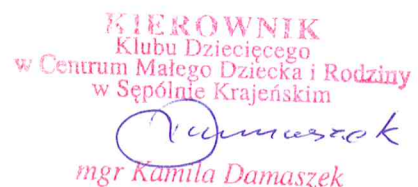 KIEROWNIK
Klubu Dziecięcego
w Centrum Małego Dziecka i Rodziny
w Sępólnie Krajeńskim
Damaszek
mgr Kamila Damaszek